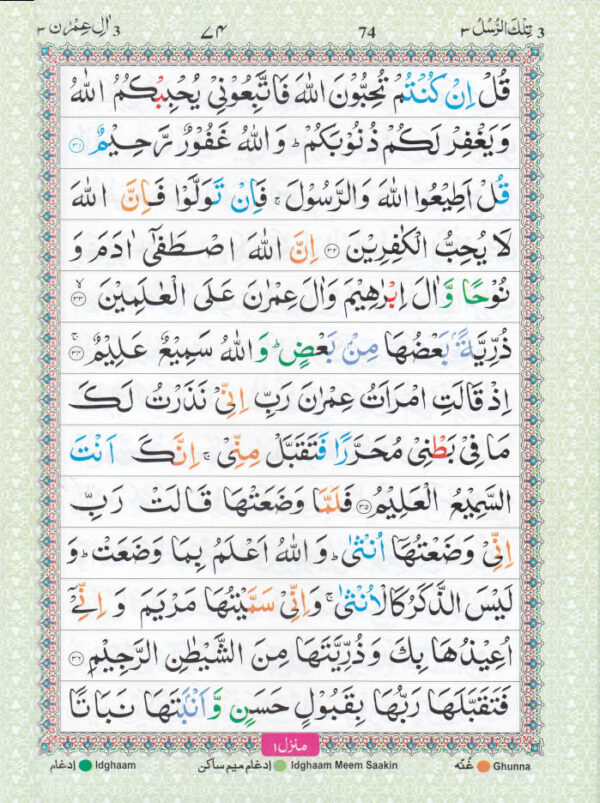 3 تِلْكَ الرُّسُلُ ٣ 74 ٧٤ 3 اٰلِ عِمْرٰن ٣
قُلْ اِنْ كُنْتُمْ تُحِبُّوْنَ اللّٰهَ فَاتَّبِعُوْنِيْ يُحْبِبْكُمُ اللّٰهُ
وَيَغْفِرْ لَكُمْ ذُنُوْبَكُمْ ؕ وَاللّٰهُ غَفُوْرٌ رَّحِيْمٌ ﴿٣١﴾
قُلْ اَطِيْعُوا اللّٰهَ وَالرَّسُوْلَ ۚ فَاِنْ تَوَلَّوْا فَاِنَّ اللّٰهَ
لَا يُحِبُّ الْكٰفِرِيْنَ ﴿٣٢﴾ اِنَّ اللّٰهَ اصْطَفٰٓى اٰدَمَ وَ
نُوْحًا وَّاٰلَ اِبْرٰهِيْمَ وَاٰلَ عِمْرٰنَ عَلَى الْعٰلَمِيْنَ ﴿٣٣﴾ ۙ
ذُرِّيَّةًۢ بَعْضُهَا مِنْۢ بَعْضٍ ؕ وَاللّٰهُ سَمِيْعٌ عَلِيْمٌ ﴿٣٤﴾ ۚ
اِذْ قَالَتِ امْرَاَتُ عِمْرٰنَ رَبِّ اِنِّيْ نَذَرْتُ لَكَ
مَا فِيْ بَطْنِيْ مُحَرَّرًا فَتَقَبَّلْ مِنِّيْ ۚ اِنَّكَ اَنْتَ
السَّمِيْعُ الْعَلِيْمُ ﴿٣٥﴾ فَلَمَّا وَضَعَتْهَا قَالَتْ رَبِّ
اِنِّيْ وَضَعْتُهَاۤ اُنْثٰى ؕ وَاللّٰهُ اَعْلَمُ بِمَا وَضَعَتْ ؕ وَ
لَيْسَ الذَّكَرُ كَالْاُنْثٰى ۚ وَاِنِّيْ سَمَّيْتُهَا مَرْيَمَ وَ اِنِّيْۤ
اُعِيْذُهَا بِكَ وَذُرِّيَّتَهَا مِنَ الشَّيْطٰنِ الرَّجِيْمِ ﴿٣٦﴾
فَتَقَبَّلَهَا رَبُّهَا بِقَبُوْلٍ حَسَنٍ وَّاَنْۢبَتَهَا نَبَاتًا
منزل ١
ادغام Idghaam ادغام میم ساکن Idghaam Meem Saakin غُنّه Ghunna